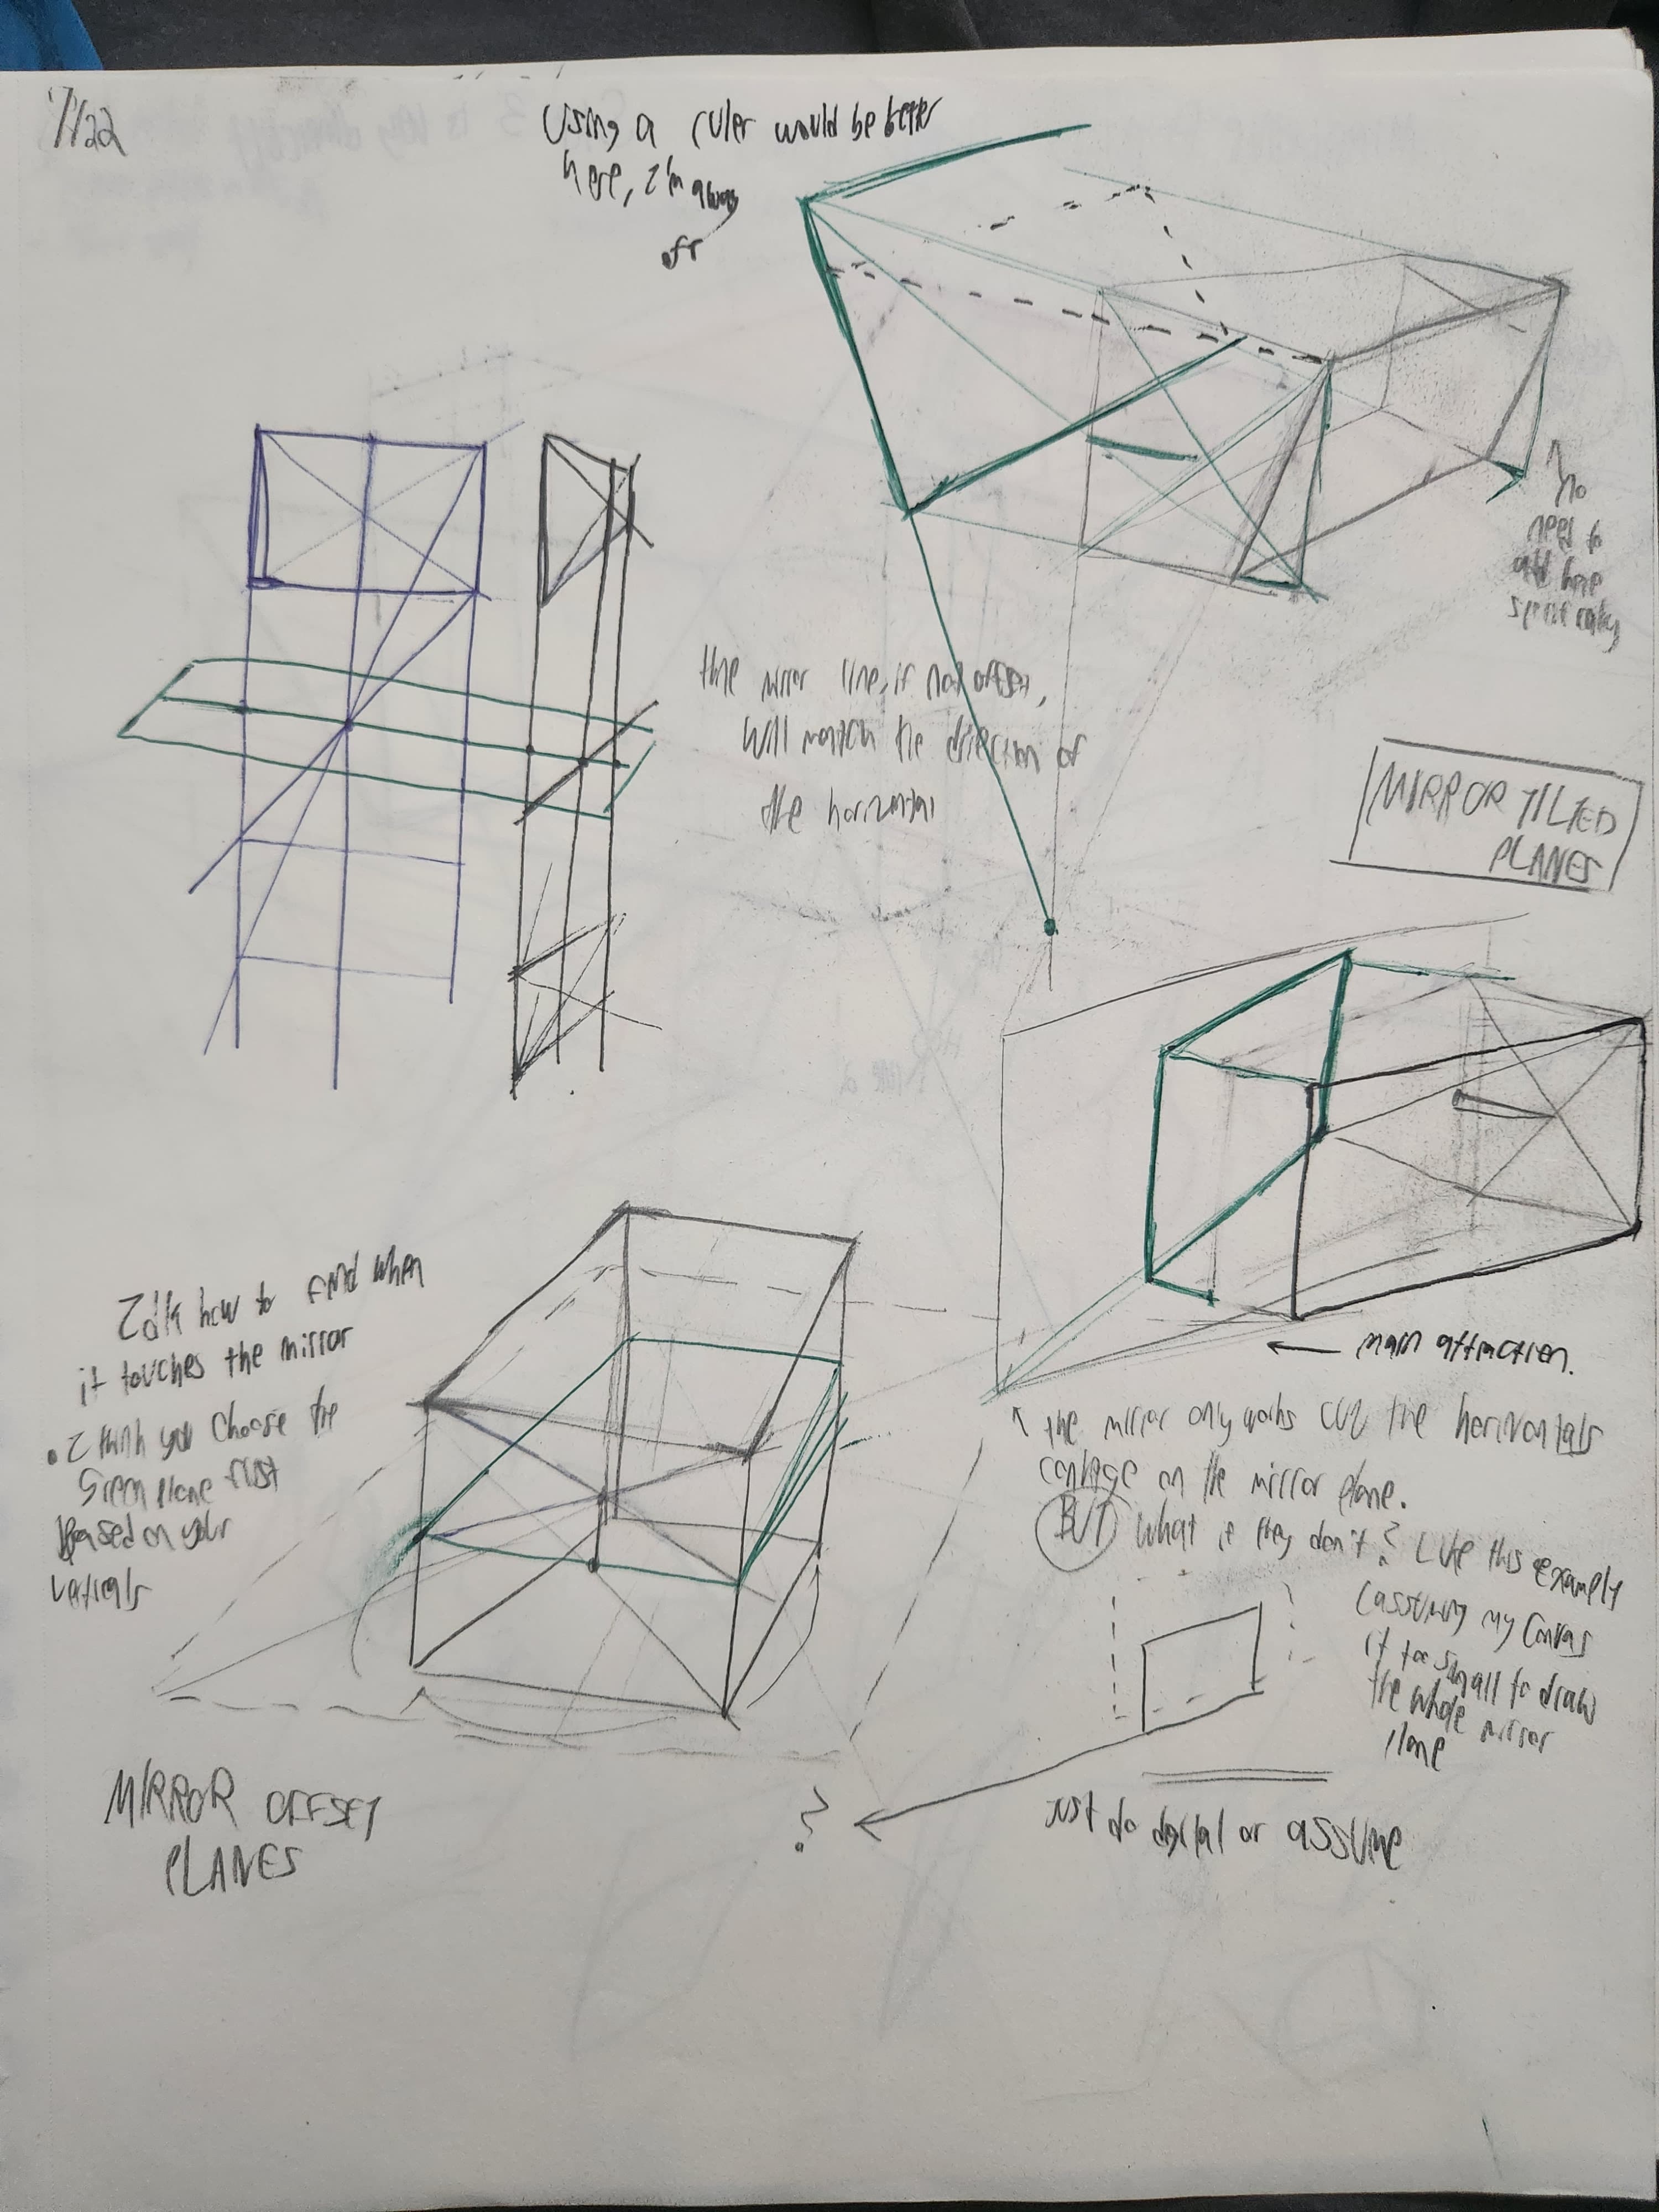 7/22
Using a ruler would be better
here, I'm always
off
No
need to
add here
specifically
the mirror line, if not offset,
will match the direction of
the horizontal
MIRROR TILTED
PLANES
Idk how to find when
it touches the mirror
• I think you choose the
Green plane first
based on your
verticals
← main attraction.
↑ the mirror only works cuz the horizontals
converge on the mirror plane.
BUT what if they don't? Like this example
(assuming my canvas
is too small to draw
the whole mirror
plane
MIRROR OFFSET
PLANES
?
just do digital or assume